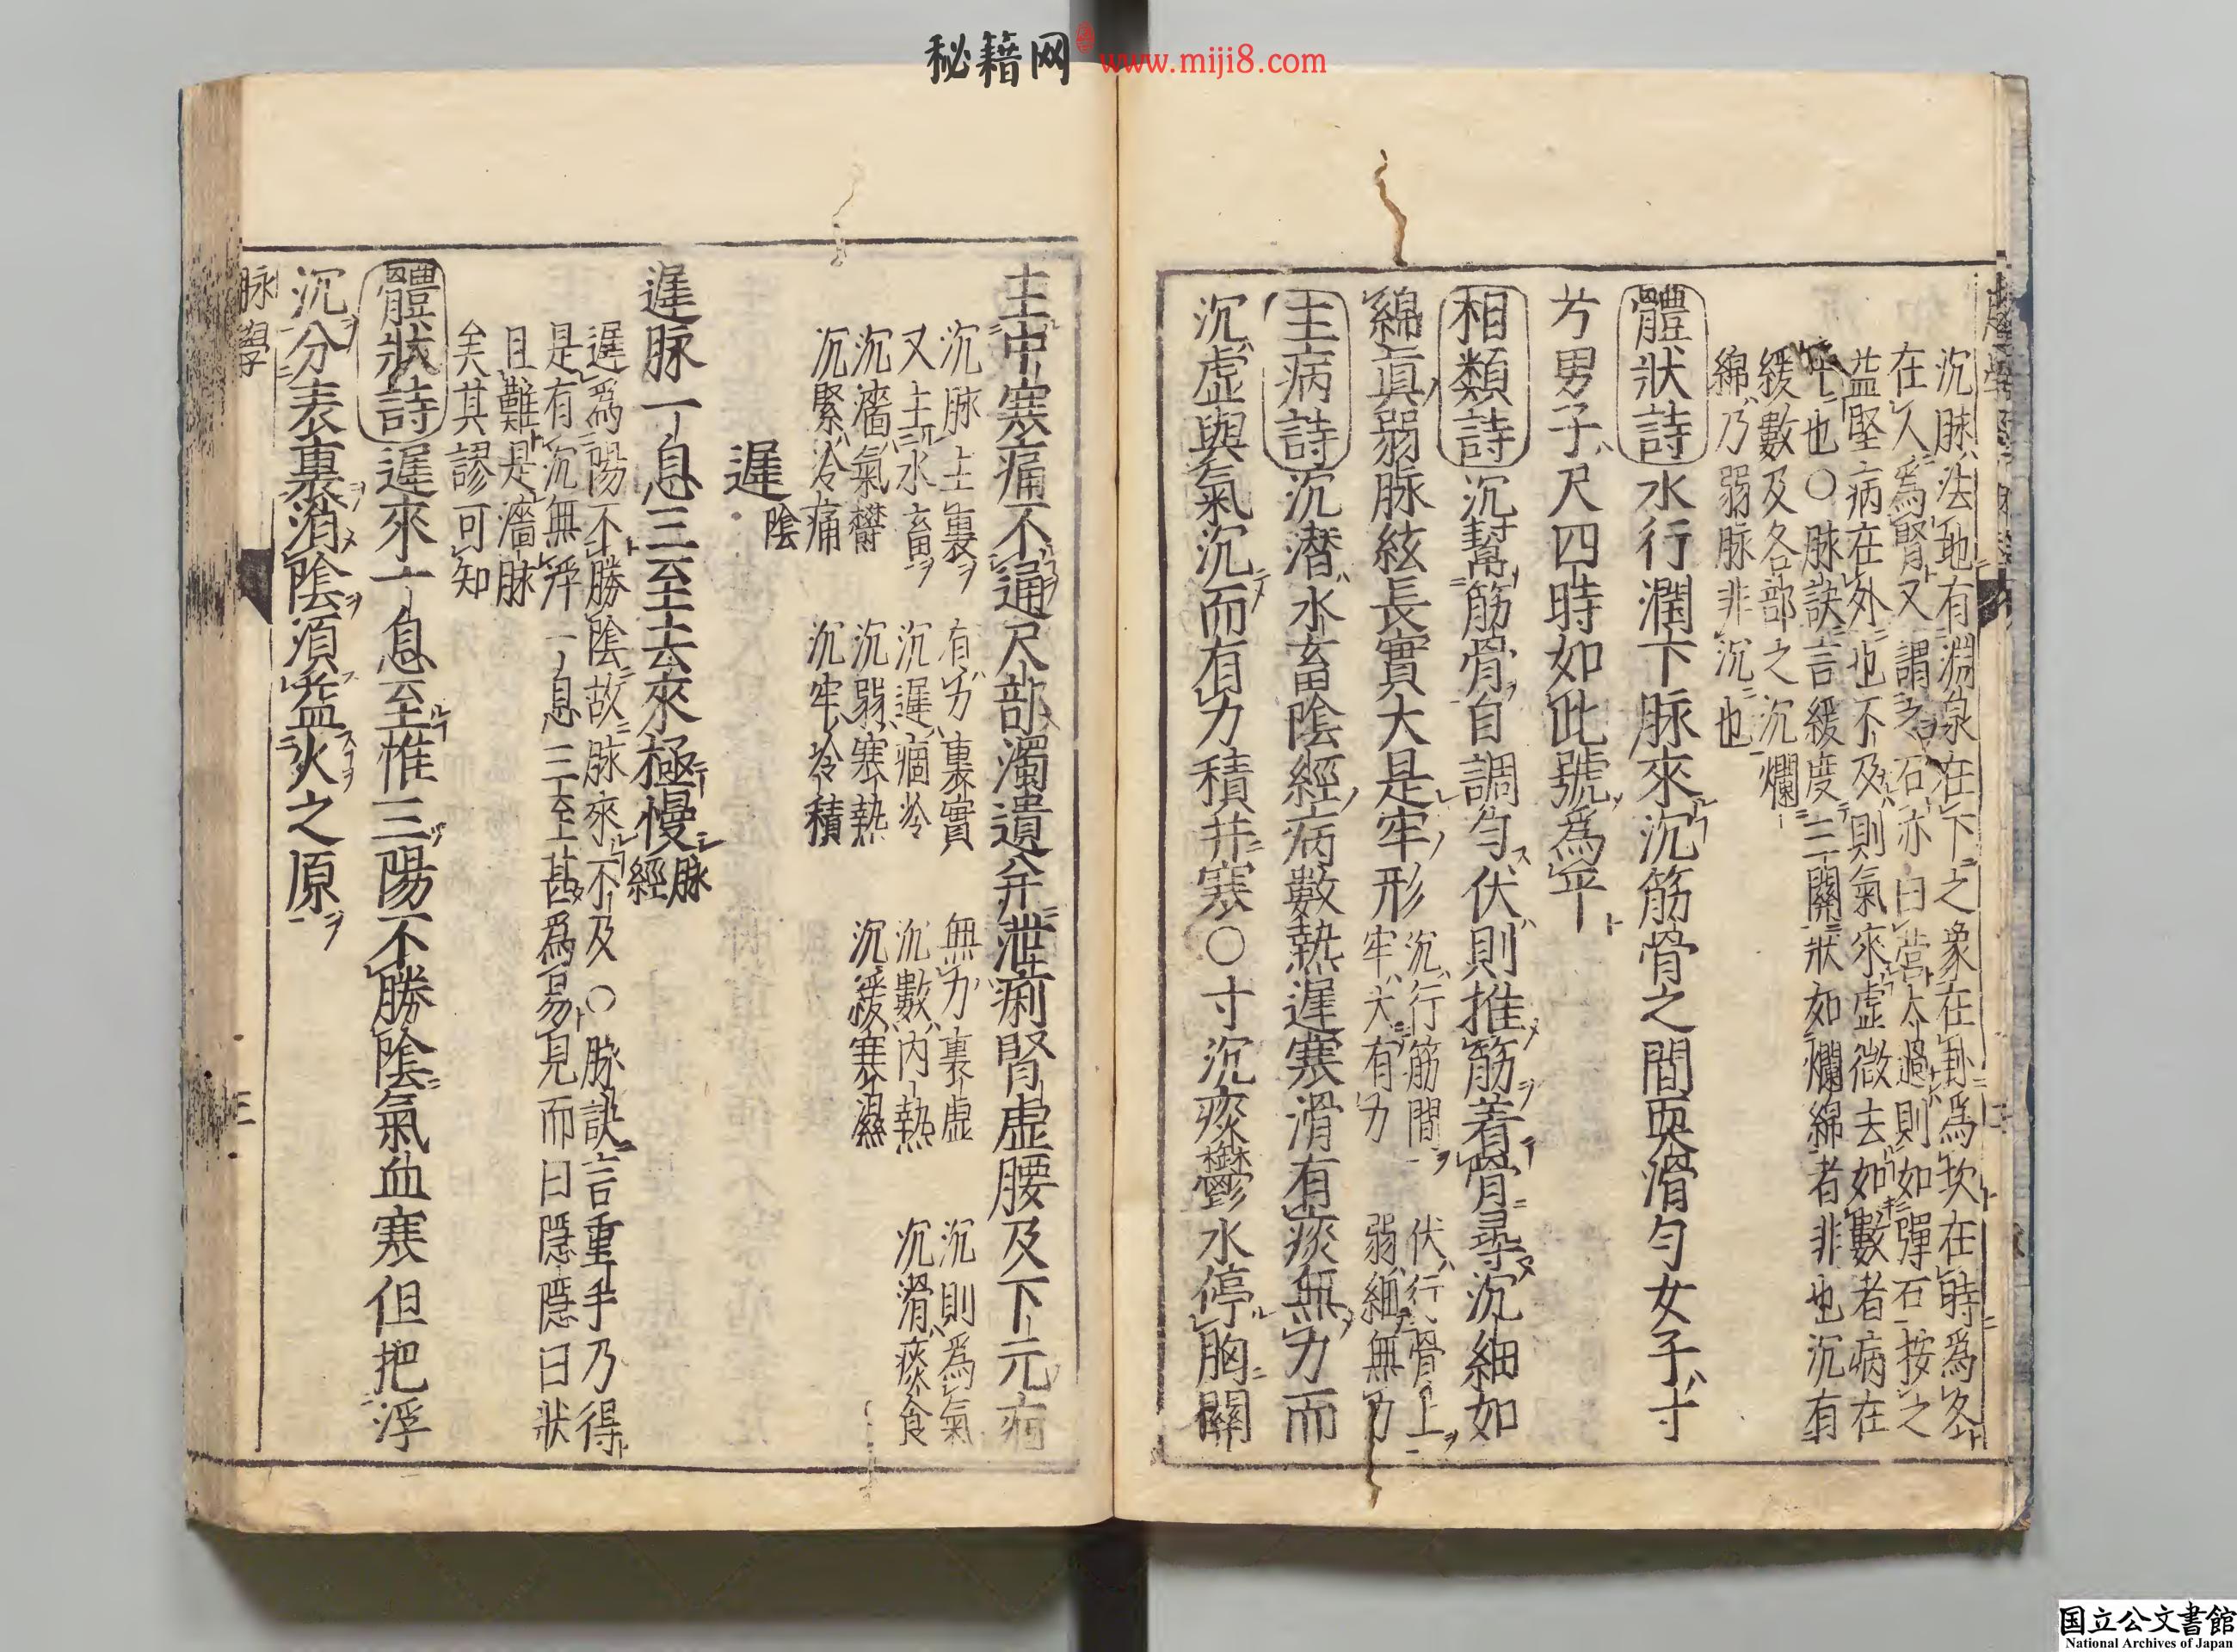 秘籍网 www.miji8.com
沉脉法地有淵泉在下之象在卦爲坎在時爲冬
在人爲腎又謂之石亦曰營太過則如彈石按之
益堅病在外也不及則氣來虛微去如數者病在
中也○脉訣言緩度三關狀如爛綿者非也沉有
緩數及各部之沉爛
綿乃弱脉非沉也
體狀詩水行潤下脉來沉筋骨之間耎滑勻女子寸
兮男子尺四時如此號爲平
相類詩沉幫筋骨自調勻伏則推筋着骨尋沉細如
綿眞弱脉絃長實大是牢形沉行筋間伏行骨上
牢大有力弱細無力
主病詩沉潜水畜陰經病數熱遲寒滑有痰無力而
沉虛與氣沉而有力積并寒○寸沉痰鬱水停胸關
主中寒痛不通尺部濁遺并泄痢腎虛腰及下元痌
沉脉主裏有力裏實無力裏虛沉則爲氣
又主水畜沉遲痼冷沉數內熱沉滑痰食
沉濇氣欝沉弱寒熱沉緩寒濕
沉緊冷痛沉牢冷積
遲陰
遲脉一息三至去來極慢脉經
遲爲陽不勝陰故脉來不及○脉訣言重手乃得
是有沉無浮一息三至甚爲易見而曰隱隱曰狀
且難是濇脉
矣其謬可知
體狀詩遲來一息至惟三陽不勝陰氣血寒但把浮
沉分表裏消陰須益火之原
脉學
三
国立公文書館
National Archives of Japan